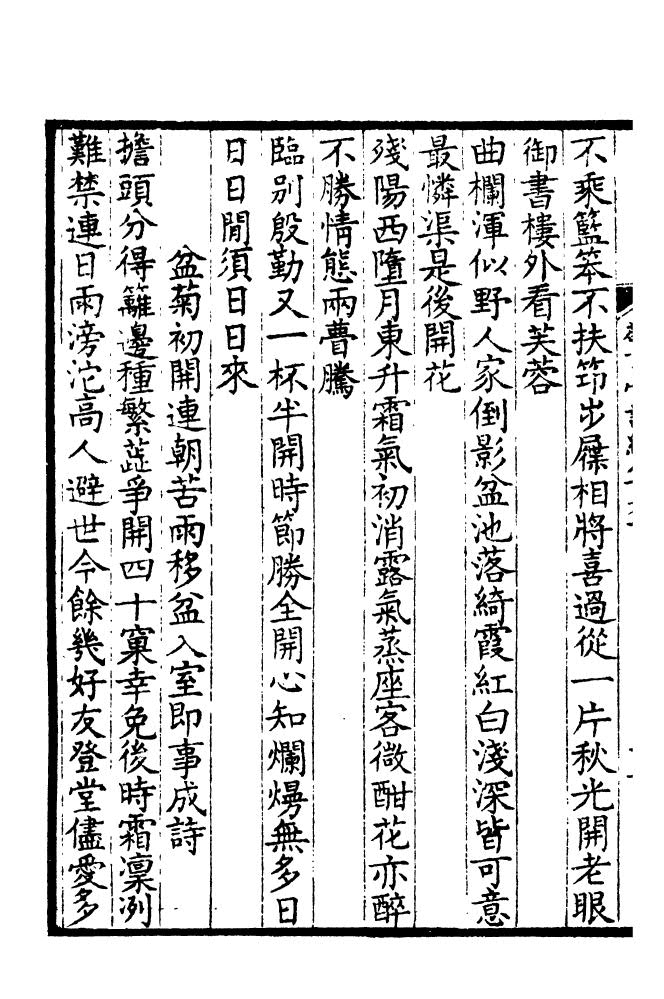 不乘籃筞不扶筇步屧相將喜過從一片秋光開老眼
御書樓外看芙蓉
曲欄渾似野人家倒影盆池落綺霞紅白淺深皆可意
最憐渠是後開花
殘陽西墮月東升霜氣初消露氣蒸座客微酣花亦醉
不勝情態兩瞢騰
臨別殷勤又一杯半開時節勝全開心知爛熳無多日
日日閒須日日來
盆菊初開連朝苦雨移盆入室即事成詩
擔頭分得籬邊種繁蕋爭開四十窠幸免後時霜凜冽
難禁連日雨滂沱高人避世今餘幾好友登堂儘愛多